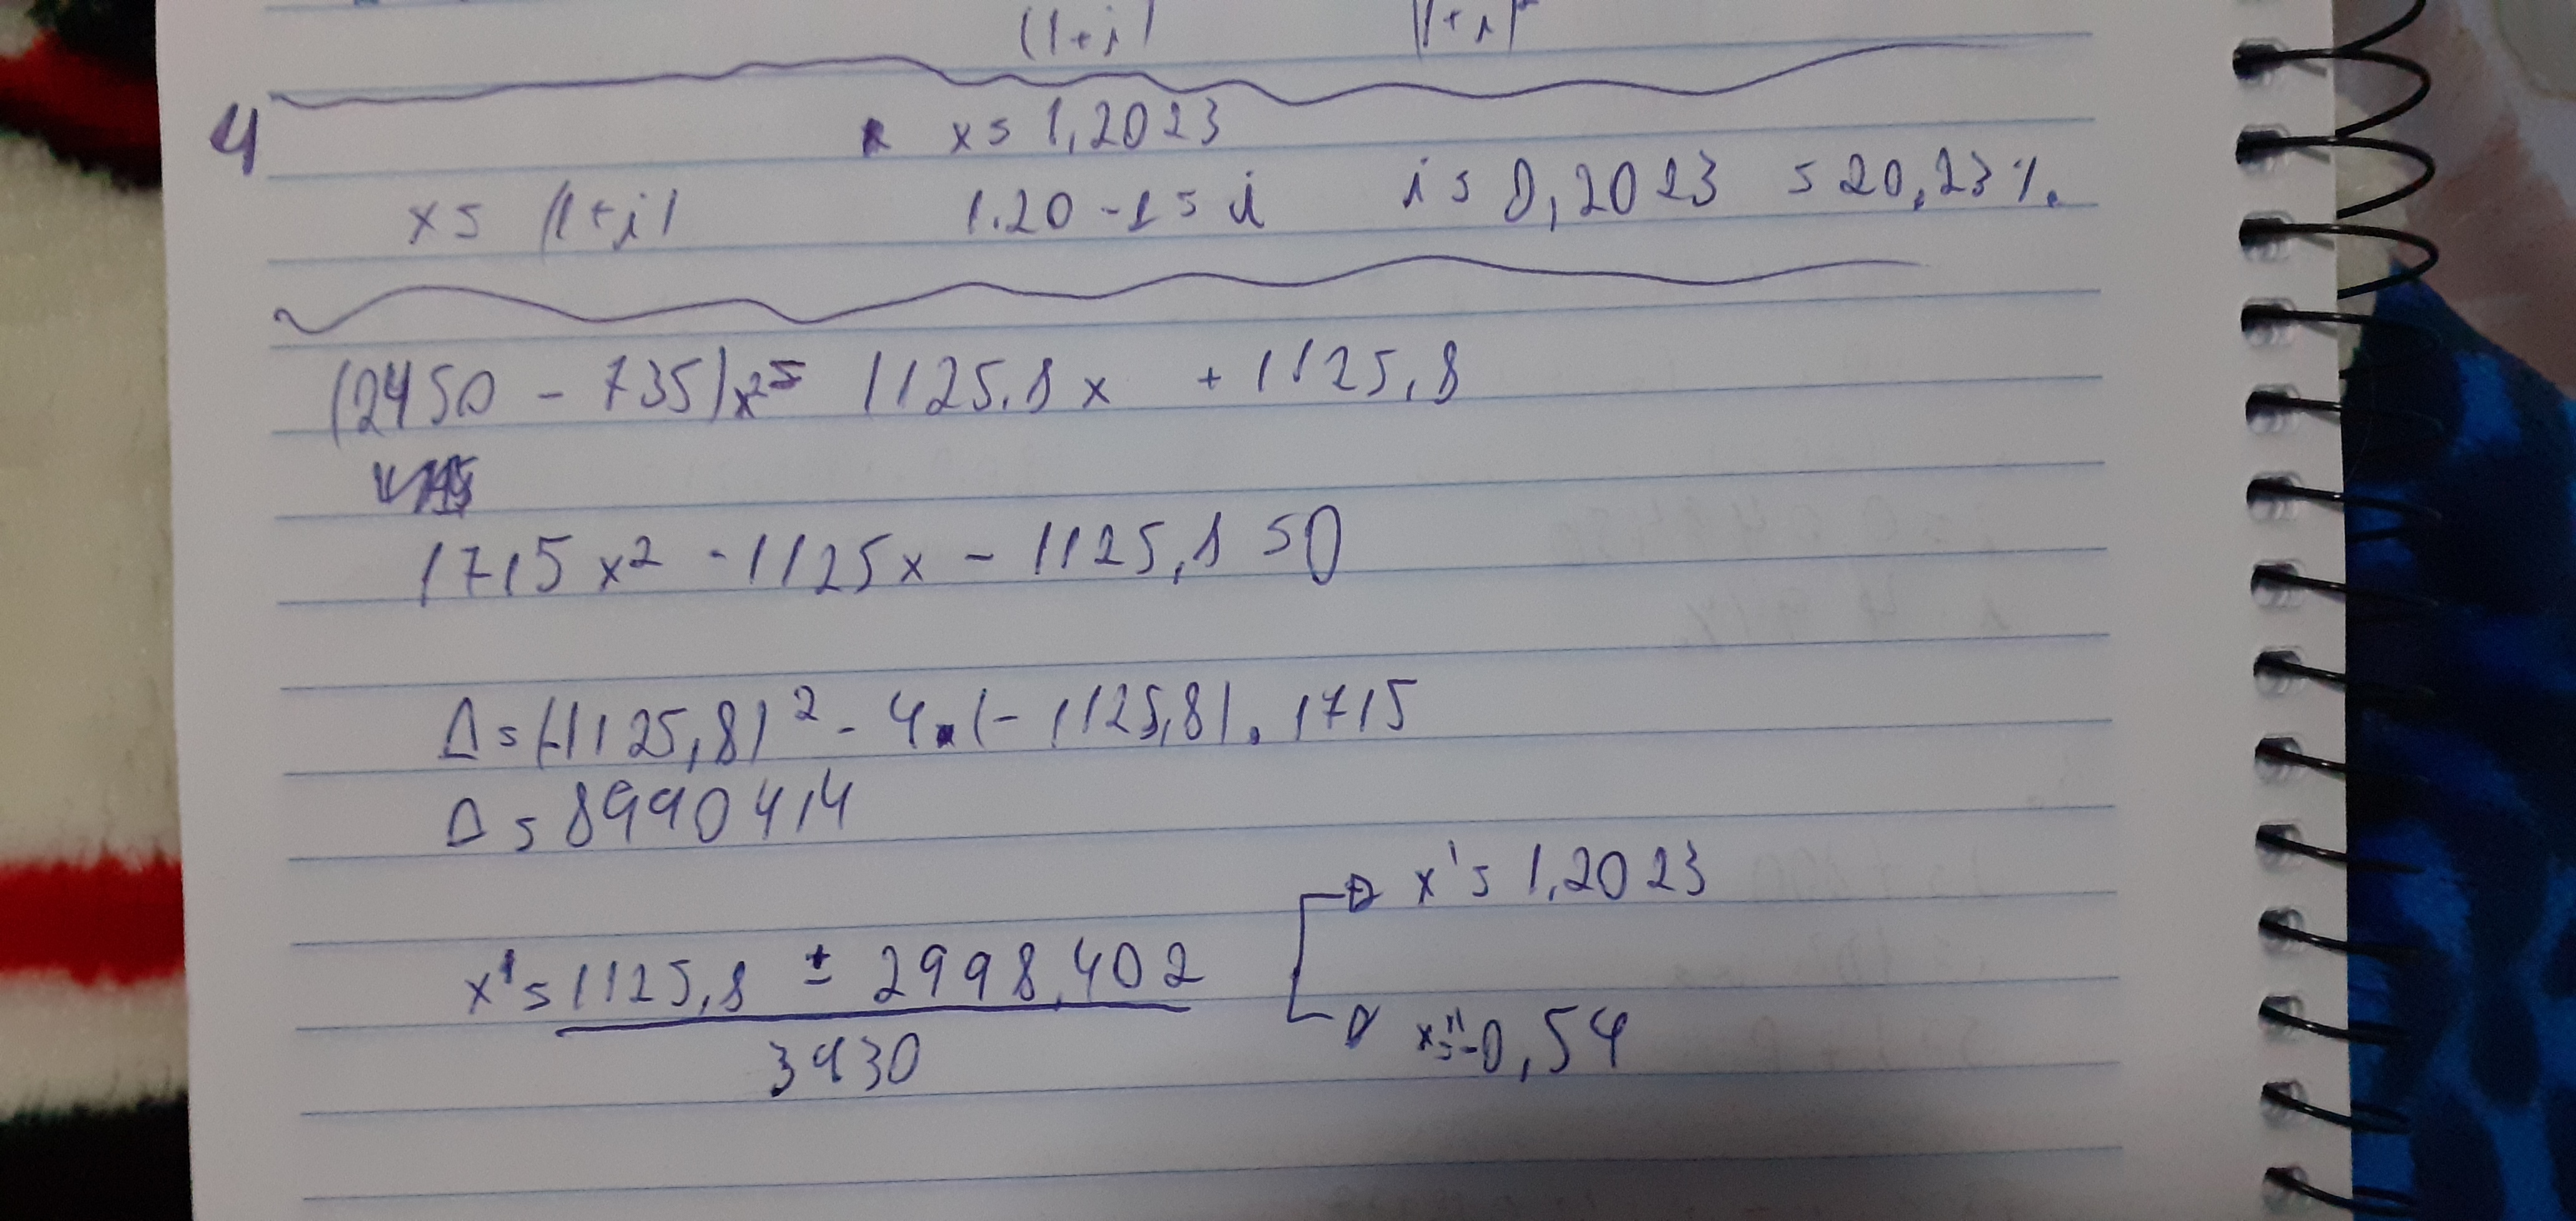 (1+i) (1+i)²
4
x = 1,2023
x = (1+i) 1.20 - 1 = i i = 0,2023 = 20,23%.
(2450 - 735)x² = 1125,8x + 1125,8
1715x² - 1125x - 1125,8 = 0
Δ = (-1125,8)² - 4.(-1125,8).1715
Δ = 8990414
x' = 1125,8 ± 2998,402
3430
x' = 1,2023
x'' = -0,54